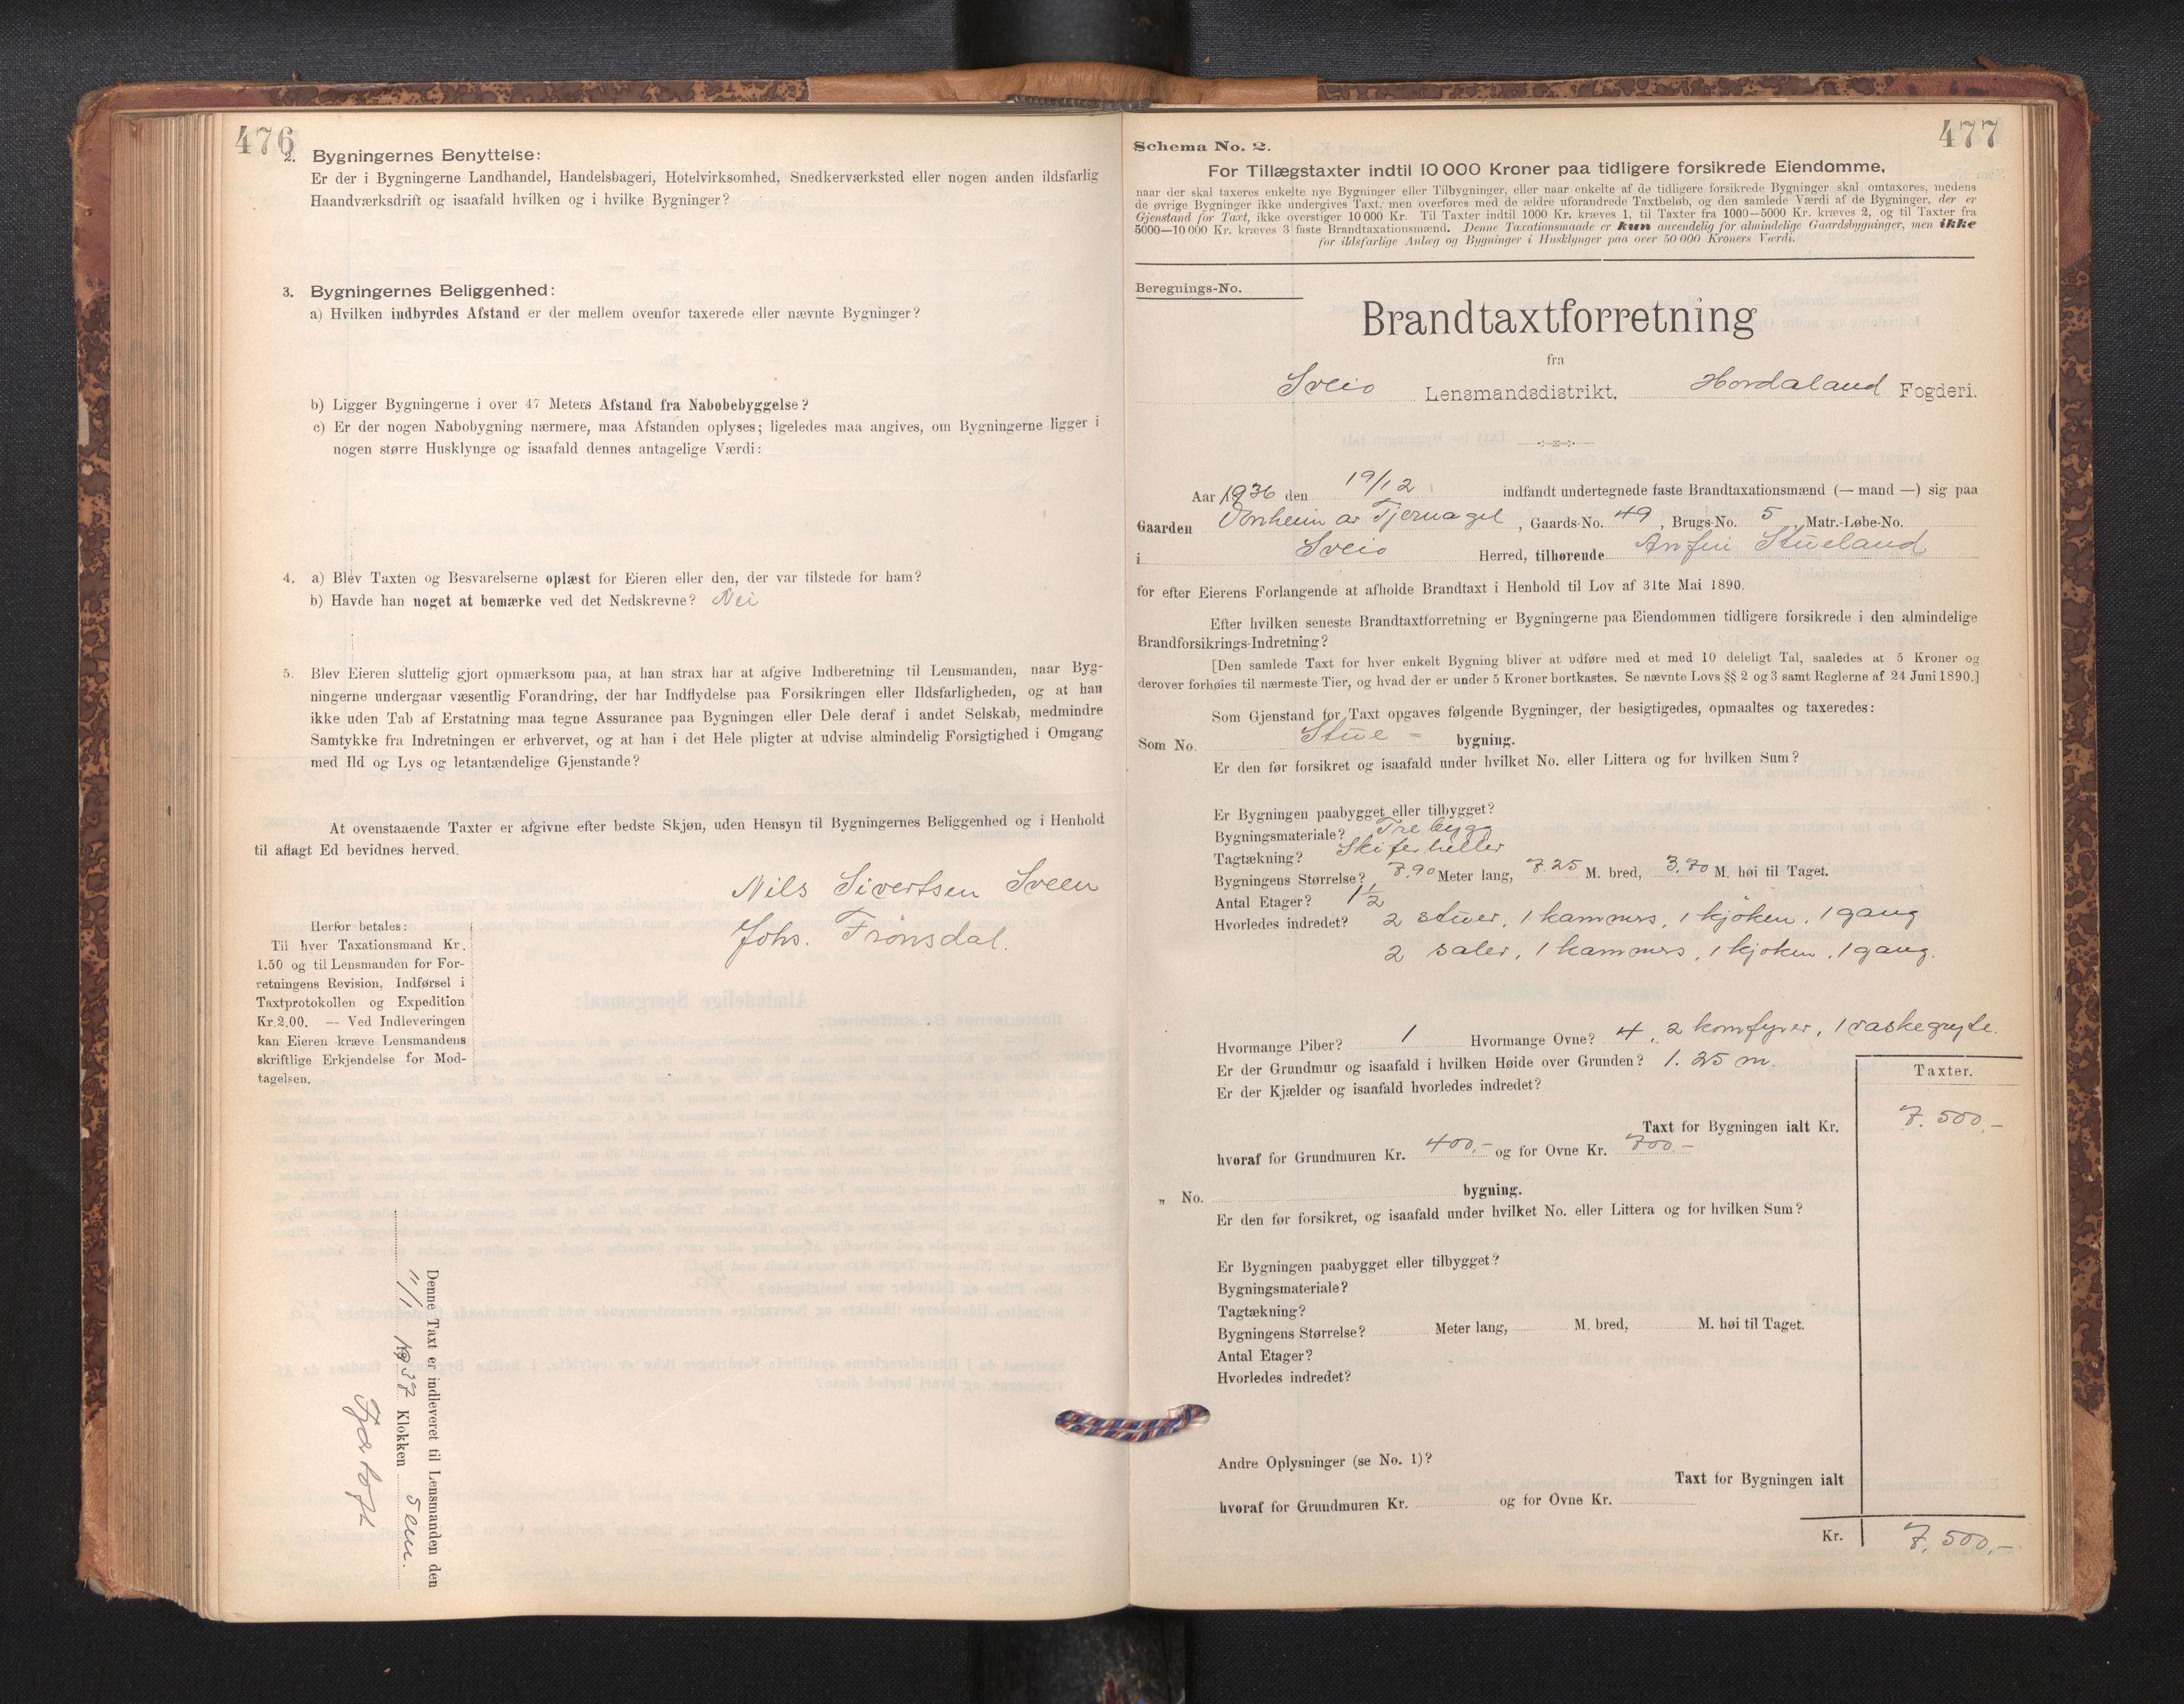 476
2. Bygningernes Benyttelse:
Er der i Bygningerne Landhandel, Handelsbageri, Hotelvirksomhed, Snedkerværksted eller nogen anden ildsfarlig
Haandværksdrift og isaafald hvilken og i hvilke Bygninger?
3. Bygningernes Beliggenhed:
a) Hvilken indbyrdes Afstand er der mellem ovenfor taxerede eller nævnte Bygninger?
b) Ligger Bygningerne i over 47 Meters Afstand fra Nabobebyggelse?
c) Er der nogen Nabobygning nærmere, maa Afstanden oplyses; ligeledes maa angives, om Bygningerne ligger i
nogen større Husklynge og isaafald dennes antagelige Værdi:
4. a) Blev Taxten og Besvarelserne oplæst for Eieren eller den, der var tilstede for ham?
b) Havde han noget at bemærke ved det Nedskrevne? Nei
5. Blev Eieren sluttelig gjort opmærksom paa, at han strax har at afgive Indberetning til Lensmanden, naar Byg-
ningerne undergaar væsentlig Forandring, der har Indflydelse paa Forsikringen eller Ildsfarligheden, og at han
ikke uden Tab af Erstatning maa tegne Assurance paa Bygningen eller Dele deraf i andet Selskab, medmindre
Samtykke fra Indretningen er erhvervet, og at han i det Hele pligter at udvise almindelig Forsigtighed i Omgang
med Ild og Lys og letantændelige Gjenstande?
At ovenstaaende Taxter er afgivne efter bedste Skjøn, uden Hensyn til Bygningernes Beliggenhed og i Henhold
til aflagt Ed bevidnes herved.
Nils Sivertsen Sveen
Johs. Trönsdal.
Herfor betales:
Til hver Taxationsmand Kr.
1.50 og til Lensmanden for For-
retningens Revision, Indførsel i
Taxtprotokollen og Expedition
Kr. 2.00. — Ved Indleveringen
kan Eieren kræve Lensmandens
skriftlige Erkjendelse for Mod-
tagelsen.
Denne Taxt er indleveret til Lensmanden den
11/1 1937 Klokken 5 em.
477
Schema No. 2.
For Tillægstaxter indtil 10 000 Kroner paa tidligere forsikrede Eiendomme,
naar der skal taxeres enkelte nye Bygninger eller Tilbygninger, eller naar enkelte af de tidligere forsikrede Bygninger skal omtaxeres, medens
de øvrige Bygninger ikke undergives Taxt, men overføres med de ældre uforandrede Taxtbeløb, og den samlede Værdi af de Bygninger, der er
Gjenstand for Taxt, ikke overstiger 10 000 Kr. Til Taxter indtil 1000 Kr. kræves 1, til Taxter fra 1000—5000 Kr. kræves 2, og til Taxter fra
5000—10 000 Kr. kræves 3 faste Brandtaxationsmænd. Denne Taxationsmaade er kun anvendelig for almindelige Gaardsbygninger, men ikke
for ildsfarlige Anlæg og Bygninger i Husklynger paa over 50 000 Kroners Værdi.
Beregnings-No.
Brandtaxtforretning
fra
Sveio Lensmandsdistrikt, Hordaland Fogderi.
Aar 1936 den 19/12 indfandt undertegnede faste Brandtaxationsmænd (— mand —) sig paa
Gaarden av Tjernagel, Gaards-No. 49, Brugs-No. 5, Matr.-Løbe-No.
i Sveio Herred, tilhørende Anfin Stueland
for efter Eierens Forlangende at afholde Brandtaxt i Henhold til Lov af 31te Mai 1890.
Efter hvilken seneste Brandtaxtforretning er Bygningerne paa Eiendommen tidligere forsikrede i den almindelige
Brandforsikrings-Indretning?
[Den samlede Taxt for hver enkelt Bygning bliver at udføre med et med 10 deleligt Tal, saaledes at 5 Kroner og
derover forhøies til nærmeste Tier, og hvad der er under 5 Kroner bortkastes. Se nævnte Lovs §§ 2 og 3 samt Reglerne af 24 Juni 1890.]
Som Gjenstand for Taxt opgaves følgende Bygninger, der besigtigedes, opmaaltes og taxeredes:
Som No. Stue - bygning.
Er den før forsikret og isaafald under hvilket No. eller Littera og for hvilken Sum?
Er Bygningen paabygget eller tilbygget?
Bygningsmateriale? Trebygg
Tagtækning? Skiferheller
Bygningens Størrelse? 7.90 Meter lang, 7.25 M. bred, 3.70 M. høi til Taget.
Antal Etager? 1 1/2
Hvorledes indredet? 2 stuer, 1 kammers, 1 kjöken, 1 gang
2 saler, 1 kammers, 1 kjöken, 1 gang.
Hvormange Piber? 1 Hvormange Ovne? 4, 2 komfyrer, 1 vaskegryte.
Er der Grundmur og isaafald i hvilken Høide over Grunden? 1.25 m.
Er der Kjælder og isaafald hvorledes indredet?
Taxter.
Taxt for Bygningen ialt Kr. 7.500,-
hvoraf for Grundmuren Kr. 400,- og for Ovne Kr. 700.-
„ No. bygning.
Er den før forsikret, og isaafald under hvilket No. eller Littera og for hvilken Sum?
Er Bygningen paabygget eller tilbygget?
Bygningsmateriale?
Tagtækning?
Bygningens Størrelse? Meter lang, M. bred, M. høi til Taget.
Antal Etager?
Hvorledes indredet?
Andre Oplysninger (se No. 1)?
Taxt for Bygningen ialt
hvoraf for Grundmuren Kr. og for Ovne Kr.
Kr. 7.500,-